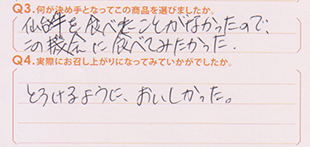 Q3.何が決め手となってこの商品を選びましたか。
仙台牛を食べたことがなかったので、
この機会に食べてみたかった.
Q4.実際にお召し上がりになってみていかがでしたか。
とろけるように、おいしかった。